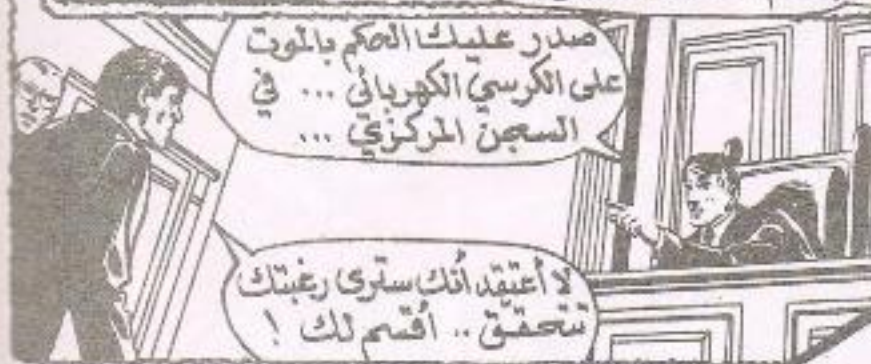 صدر عليك الحكم بالموت
على الكرسي الكهربائي ... في
السجن المركزي ...
لا أعتقد أنك سترى رغبتك
تتحقق .. أقسم لك !